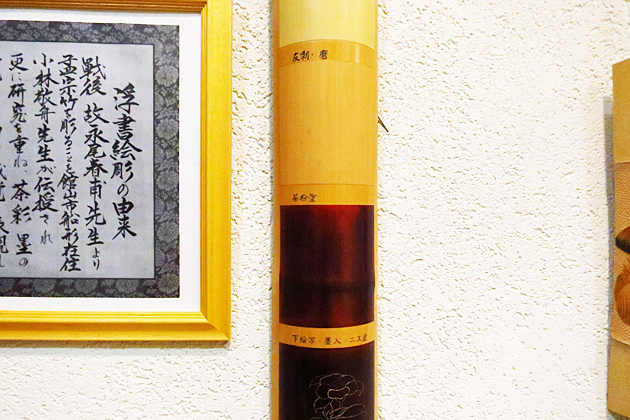 浮書絵彫の由来
戦後 故永尾春甫先生より
孟宗竹を彫ることを館山市船形在住
小林秋舟先生が伝授され
更に研究を重ね 茶彩 墨の
皮剥・磨
茶粉塗
下絵写・墨入・ニス塗